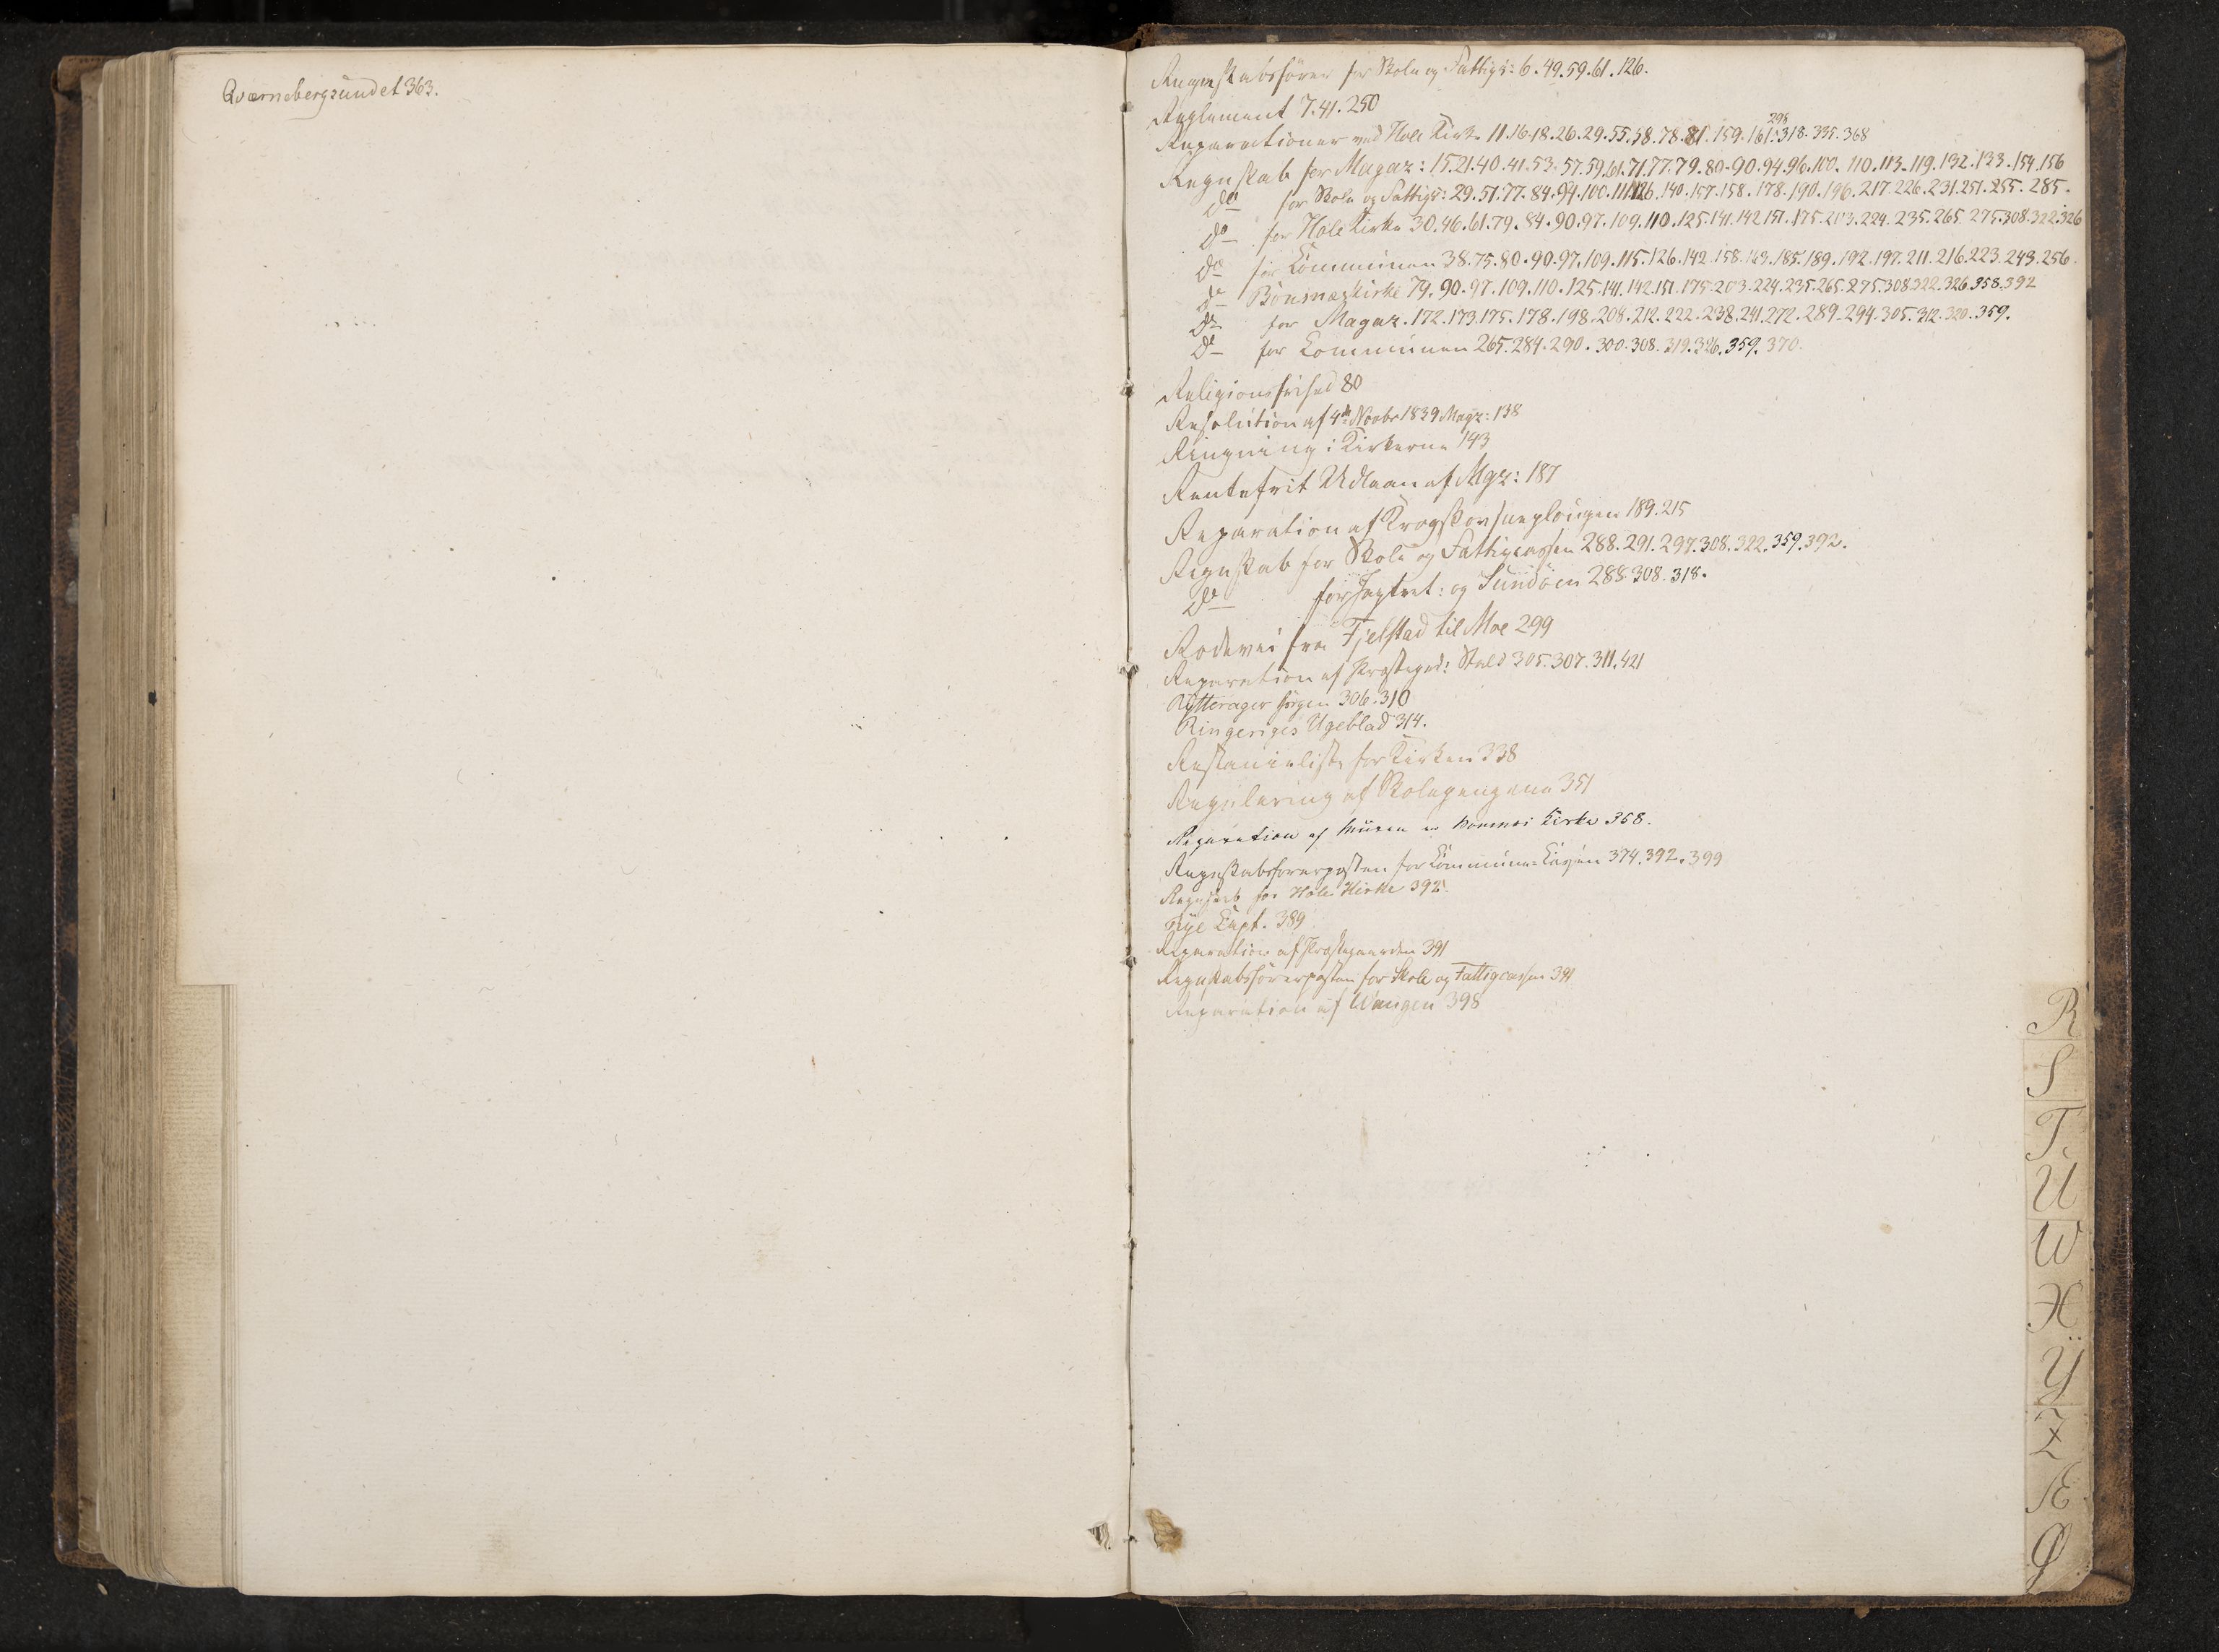 Qværnebergsundet 363.
Regnskabsfører for Skole og Fattigv: 6. 49. 59. 61. 126.
Reglement 7. 41. 250
Reparationer ved Hole Kirke 11. 16. 18. 26. 29. 55. 58. 78. 81. 159. 161. 298. 318. 335. 368
Regnskab for Magaz: 15. 21. 40. 41. 53. 57. 59. 61. 71. 77. 79. 80. 90. 94. 96. 100. 110. 113. 119. 132. 133. 154. 156
Do for Skole og Fattigv: 29. 51. 77. 84. 94. 100. 111. 126. 140. 157. 158. 178. 190. 196. 217. 226. 231. 251. 255. 285.
Do for Hole Kirke 30. 46. 61. 79. 84. 90. 97. 109. 110. 125. 141. 142. 151. 175. 203. 224. 235. 265. 275. 308. 322. 326
Do for Communen 38. 75. 80. 90. 97. 109. 115. 126. 142. 158. 169. 185. 189. 192. 197. 211. 216. 223. 243. 256.
Do Bönsnæs Kirke 79. 90. 97. 109. 110. 125. 141. 142. 151. 175. 203. 224. 235. 265. 275. 308. 322. 326. 358. 392
Do for Magaz. 172. 173. 175. 178. 198. 208. 212. 222. 238. 241. 272. 289. 294. 305. 312. 320. 359.
Do for Communen 265. 284. 290. 300. 308. 319. 326. 359. 370.
Religionsfrihed 80
Resolution af 4de Novbr 1839 Magz: 138
Ringning i Kirkerne 143
Rentefrit Udlaan af Mgz: 187
Reparation af Krogskovsneplougen 189. 215
Regnskab for Skole og Fattigcassen 288. 291. 297. 308. 322. 359. 392.
Do for og Sundöen 288. 308. 318.
Rodevei fra Fjelstad til Moe 299
Reparation af Præstegrd: Stald 305. 307. 311. 421
Rytterager Jörgen 306. 310
Ringeriges Ugeblad 314.
Restanceliste for Kirken 338
Regulering af Skolegangene 351
Reparation af Muren om Bönsnæs Kirke 368.
Regnskabsførerposten for Commune-Cassen 374. 392. 399
Regnskab for Hole Kirke 392.
Rye Capt. 389
Reparation af Præstegaarden 391
Regnskabsförerposten for Skole og Fattigcassen 391
Reparation af Waagen 398
R
S
T
U
W
X
Y
Z
Æ
Ø